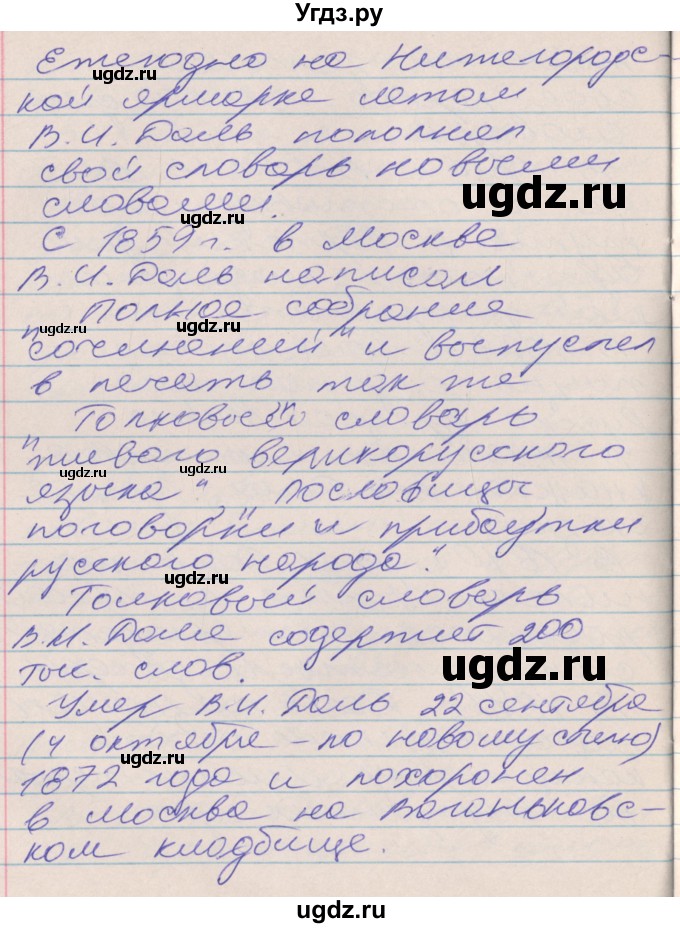 Угдз.ру
Ежегодно на Нижегородс-
ugdz.ru
кой ярмарке летом
В.И. Даль пополнял
свой словарь новыми
ugdz.ru
словами.
ugdz.ru
С 1859 г. в Москве
В.И. Даль написал
"Полное собрание
ugdz.ru ugdz.ru
сочинений" и выпустил
в печать так же
"Толковый словарь
живого великорусского
ugdz.ru ugdz.ru
языка", "Пословицы
поговорки и прибаутки
русского народа".
ugdz.ru
Толковый словарь
В.И. Даля содержит 200
тыс. слов.
ugdz.ru
Умер В.И. Даль 22 сентября
ugdz.ru
(4 октября - по новому стилю)
1872 года и похоронен
в Москва на Ваганьковс-
ugdz.ru
ком кладбище.
ugdz.ru